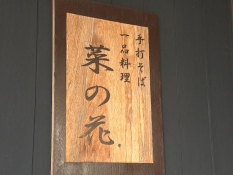 手打そば
一品料理
菜の花